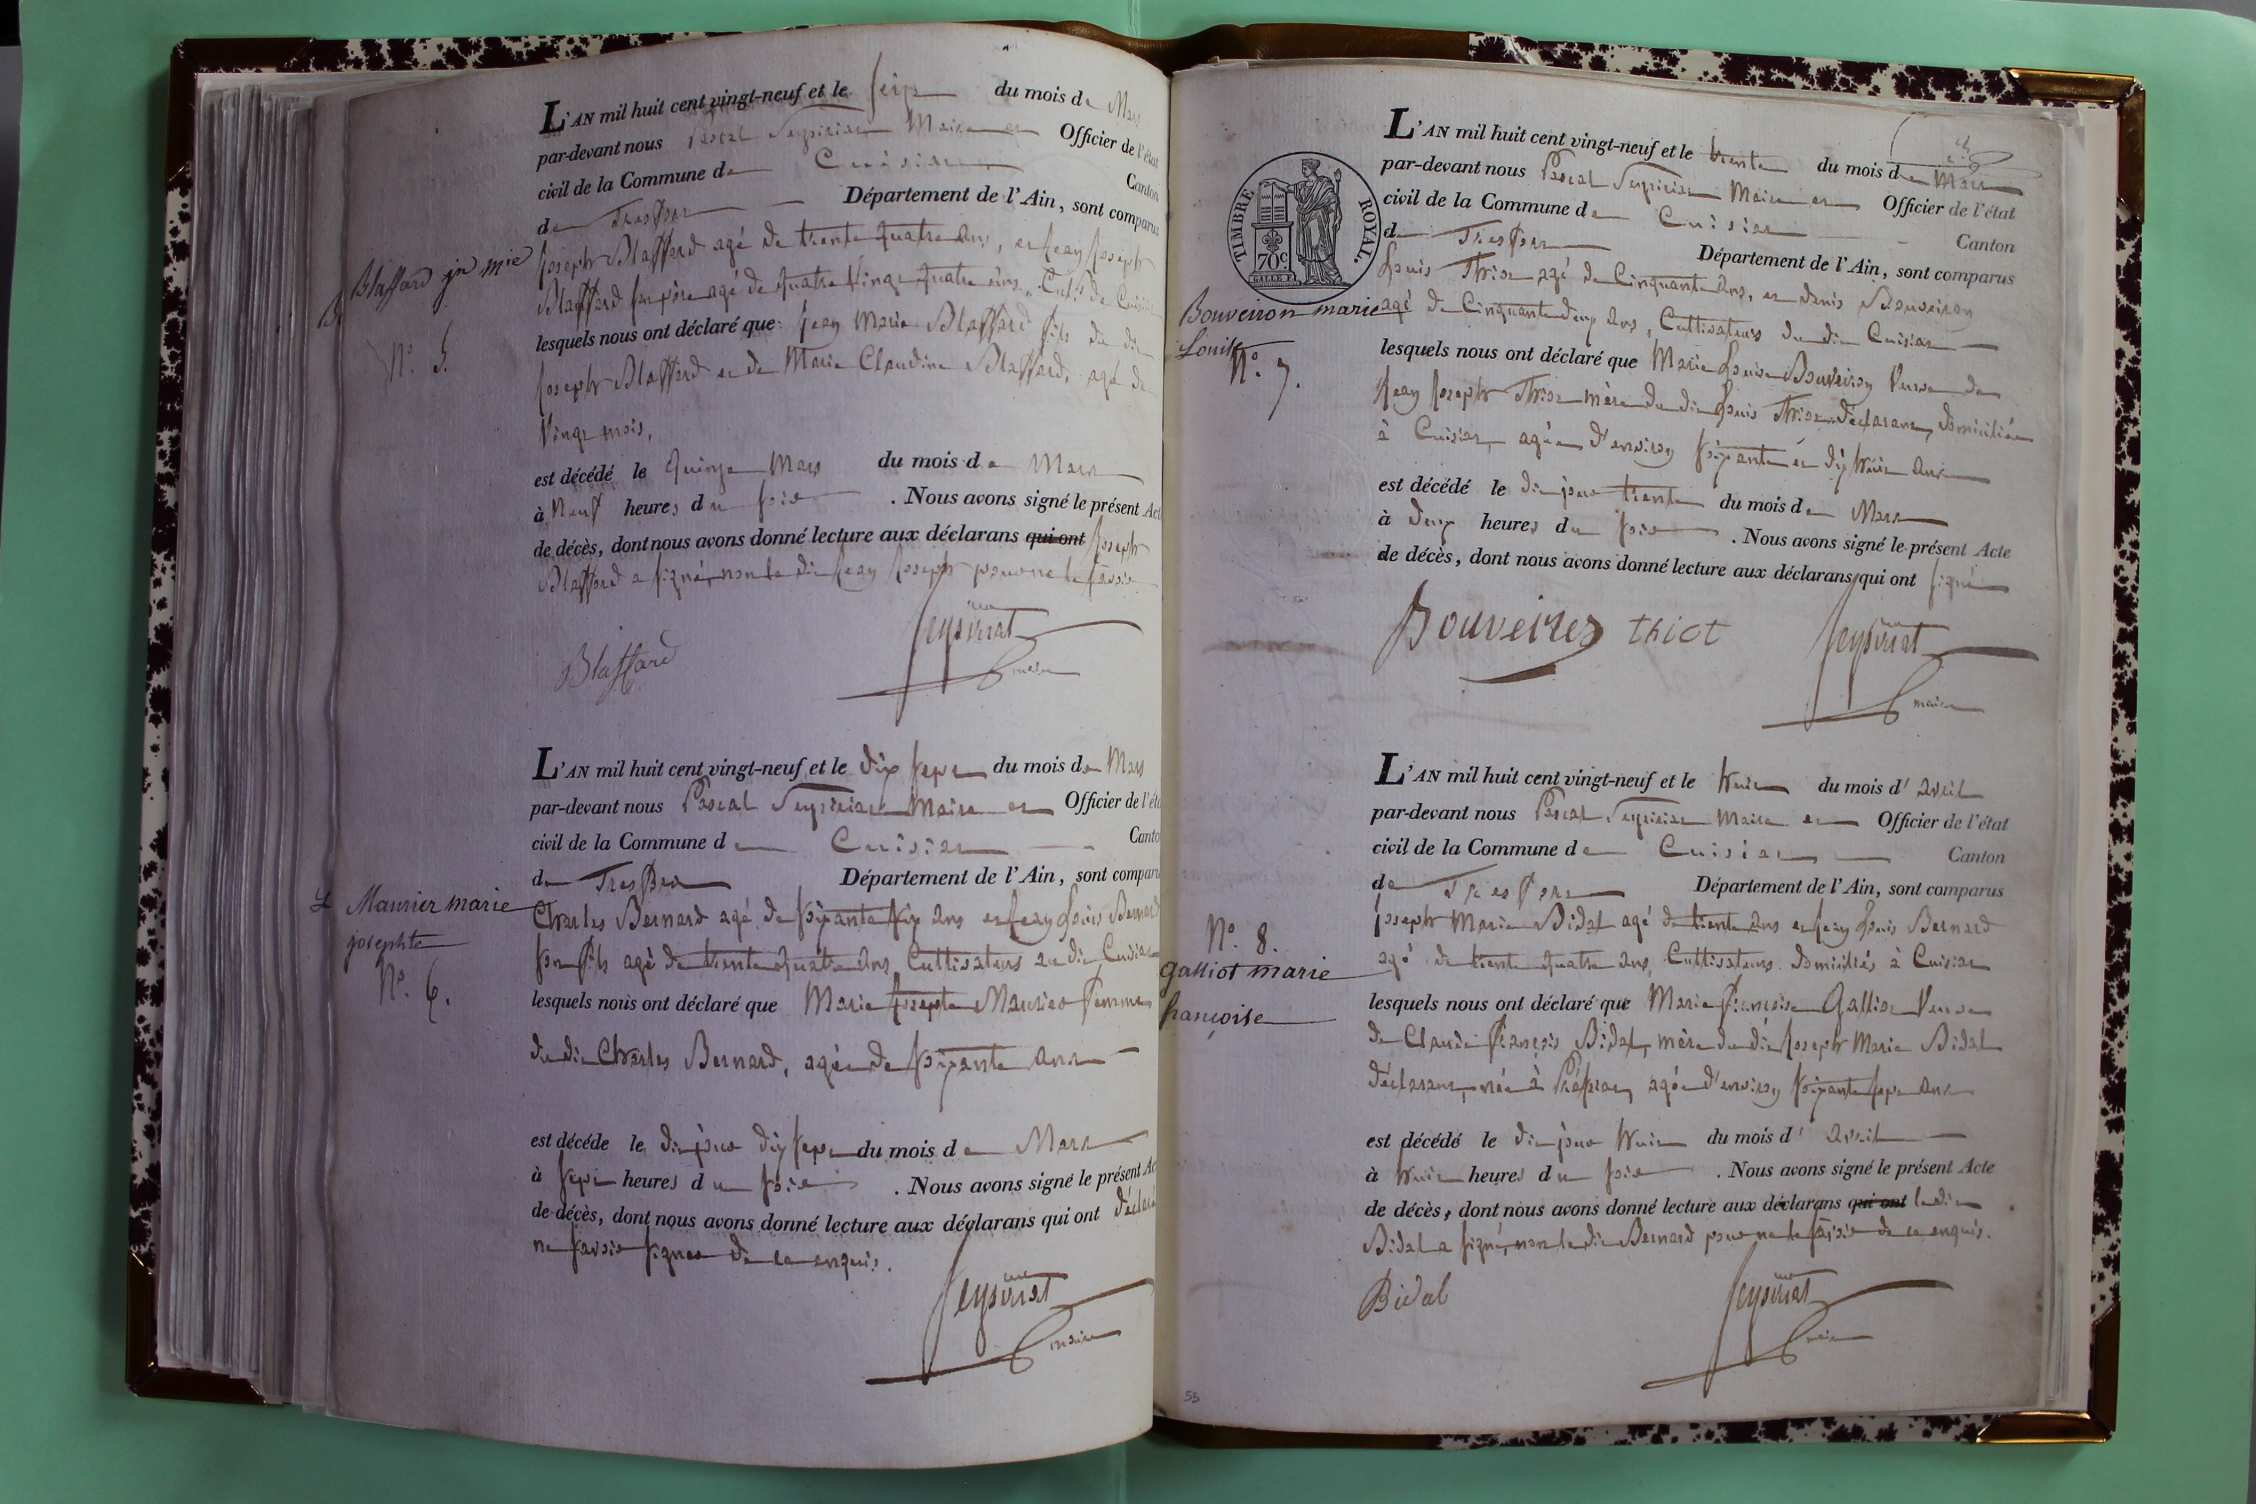 L'AN mil huit cent vingt-neuf et le seize du mois de Mars
par-devant nous Pascal Seyssiriat Maire et Officier de l'état
civil de la Commune de Cuisiat Canton
de Treffort Département de l'Ain, sont comparus
Blaffard jn mie
Joseph Blaffard agé de trente quatre ans, et Jean Joseph
Blaffard son père agé de quatre vingt quatre ans, Cult. de Cuisiat
N.º 5.
lesquels nous ont déclaré que Jean Marie Blaffard fils du dit
Joseph Blaffard et de Marie Claudine Blaffard, agé de
vingt mois,
est décédé le quinze Mars du mois de Mars
à neuf heures du soir. Nous avons signé le présent Acte
de décès, dont nous avons donné lecture aux déclarans qui ont Joseph
Blaffard a signé, non le dit Jean Joseph pour ne le savoir
Blaffard Seyssiriat
maire
L'AN mil huit cent vingt-neuf et le dix sept du mois de Mars
par-devant nous Pascal Seyssiriat Maire et Officier de l'état
civil de la Commune de Cuisiat Canton
de Treffort Département de l'Ain, sont comparus
Maurier marie
josephte
N.º 6.
Charles Bernard agé de soixante six ans et Jean Louis Bernard
son fils agé de trente quatre ans, Cultivateurs au dit Cuisiat
lesquels nous ont déclaré que Marie Josephte Maurier femme
du dit Charles Bernard, agée de soixante ans
est décéde le dit jour dix sept du mois de Mars
à sept heures du soir. Nous avons signé le présent Acte
de décès, dont nous avons donné lecture aux déclarans qui ont déclaré
ne savoir signer de ce enquis.
Seyssiriat
maire
L'AN mil huit cent vingt-neuf et le trente du mois de Mars
par-devant nous Pascal Seyssiriat Maire et Officier de l'état
civil de la Commune de Cuisiat Canton
de Treffort Département de l'Ain, sont comparus
TIMBRE ROYAL.
70c
Bouveiron marie
Louise
N.º 7.
Louis Thiot agé de Cinquante ans, et denis Bouveiron
agé de Cinquante deux ans, Cultivateurs du dit Cuisiat
lesquels nous ont déclaré que Marie Louise Bouveiron Veuve de
Jean Joseph Thiot mère du dit Louis Thiot déclarant, domiciliée
à Cuisiat, agée d'environ soixante et dix huit ans
est décédé le dit jour trente du mois de Mars
à deux heures du soir. Nous avons signé le présent Acte
de décès, dont nous avons donné lecture aux déclarans qui ont signé
Bouveiron thiot Seyssiriat
maire
L'AN mil huit cent vingt-neuf et le huit du mois d'avril
par-devant nous Pascal Seyssiriat Maire et Officier de l'état
civil de la Commune de Cuisiat Canton
de Treffort Département de l'Ain, sont comparus
N.º 8.
galliot marie
françoise
Joseph Marie Bidal agé de trente ans et Jean Louis Bernard
agé de trente quatre ans, Cultivateurs domiciliés à Cuisiat
lesquels nous ont déclaré que Marie Françoise Galliot Veuve
de Claude François Bidal, mère du dit Joseph Marie Bidal
déclarant, née à agée d'environ soixante sept ans
est décédé le dit jour huit du mois d'avril
à huit heures du soir. Nous avons signé le présent Acte
de décès, dont nous avons donné lecture aux déclarans qui ont le dit
Bidal a signé, non le dit Bernard pour ne le savoir de ce enquis.
Bidal Seyssiriat
maire
55